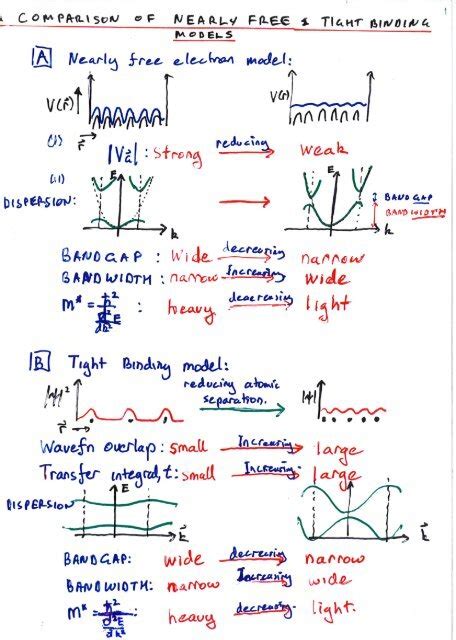 COMPARISON OF NEARLY FREE & TIGHT BINDING
MODELS
1
A Nearly free electron model:
V(r) V(r)
(i) r
|Va|: Strong reducing weak
(ii) E E
DISPERSION: k k BANDGAP
BANDWIDTH
BANDGAP : Wide decreasing narrow
BANDWIDTH : narrow Increasing wide
m* = ħ² / d²E/dk² : heavy decreasing light
B Tight Binding model:
|ψ|² reducing atomic separation. |ψ|
r
Wavefn overlap: small Increasing large
Transfer integral, t: small Increasing large
DISPERSION E k
BANDGAP: wide decreasing narrow
BANDWIDTH: narrow Increasing wide
m* = ħ² / d²E/dk² : heavy decreasing light.